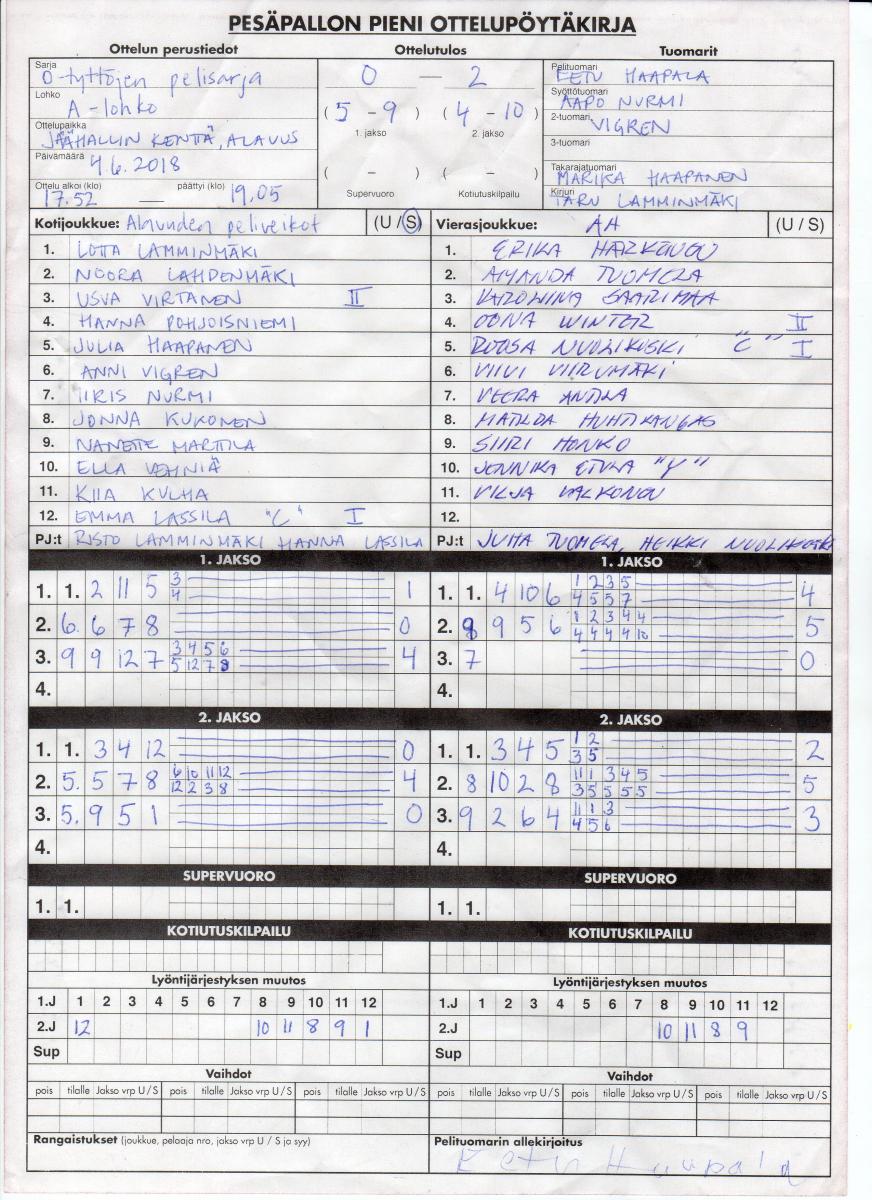 PESÄPALLON PIENI OTTELUPÖYTÄKIRJA
Ottelun perustiedot Ottelutulos Tuomarit
Sarja
D-tyttöjen pelisarja
Lohko
A-lohko
Ottelupaikka
JÄÄHALLIN KENTTÄ, ALAVUS
Päivämäärä
4.6.2018
Ottelu alkoi (klo) päättyi (klo)
17.52 — 19.05
0 — 2
( 5 - 9 ) ( 4 - 10 )
1. jakso 2. jakso
( - ) ( - )
Supervuoro Kotiutuskilpailu
Pelituomari
EETU HAAPALA
Syöttötuomari
AAPO NURMI
2-tuomari
VIGREN
3-tuomari
Takarajatuomari
MARIKA HAAPANEN
Kirjuri
TARU LAMMINMÄKI
Kotijoukkue: Alavuden peliveikot (U / S)
1. LOTTA LAMMINMÄKI
2. NOORA LAHDENMÄKI
3. USVA VIRTANEN II
4. HANNA POHJOISNIEMI
5. JULIA HAAPANEN
6. ANNI VIGREN
7. IIRIS NURMI
8. JONNA KUKONEN
9. NANETTE MARTTILA
10. ELLA VEHNIÄ
11. KIIA KULHA
12. EMMA LASSILA "C" I
PJ:t RISTO LAMMINMÄKI HANNA LASSILA
Vierasjoukkue: AH (U / S)
1. ERIKA HARKÖNEN
2. AMANDA TUOMELA
3. KAROLIINA SAARIMAA
4. OONA WINTER II
5. ROOSA NUOLIKOSKI "C" I
6. VIIVI VIIRUMÄKI
7. VEERA ANTILA
8. MATILDA HUHTIKANGAS
9. SIIRI HONKO
10. JENNIKA ETULA "V"
11. VILJA VALKONEN
12.
PJ:t JUHA TUOMELA, HEIKKI NUOLIKOSKI
1. JAKSO
1. 1. 2 11 5 3 4 1
2. 6. 6 7 8 0
3. 9 9 12 7 3 4 5 6 5 12 7 8 4
4.
1. JAKSO
1. 1. 4 10 6 1 2 3 5 4 5 5 7 4
2. 8 9 5 6 1 2 3 4 4 4 4 4 4 10 5
3. 7 0
4.
2. JAKSO
1. 1. 3 4 12 0
2. 5. 5 7 8 6 10 11 12 12 2 3 8 4
3. 5. 9 5 1 0
4.
2. JAKSO
1. 1. 3 4 5 1 2 3 5 2
2. 8 10 2 8 11 1 3 4 5 3 5 5 5 5 5
3. 9 2 6 4 11 1 3 4 5 6 3
4.
SUPERVUORO
1. 1.
SUPERVUORO
1. 1.
KOTIUTUSKILPAILU
KOTIUTUSKILPAILU
Lyöntijärjestyksen muutos
1.J 1 2 3 4 5 6 7 8 9 10 11 12
2.J 12 10 11 8 9 1
Sup
Lyöntijärjestyksen muutos
1.J 1 2 3 4 5 6 7 8 9 10 11 12
2.J 10 11 8 9
Sup
Vaihdot
pois tilalle Jakso vrp U / S pois tilalle Jakso vrp U / S pois tilalle Jakso vrp U / S
Vaihdot
pois tilalle Jakso vrp U / S pois tilalle Jakso vrp U / S pois tilalle Jakso vrp U / S
Rangaistukset (joukkue, pelaaja nro, jakso vrp U / S ja syy)
Pelituomarin allekirjoitus
Eetu Haapala